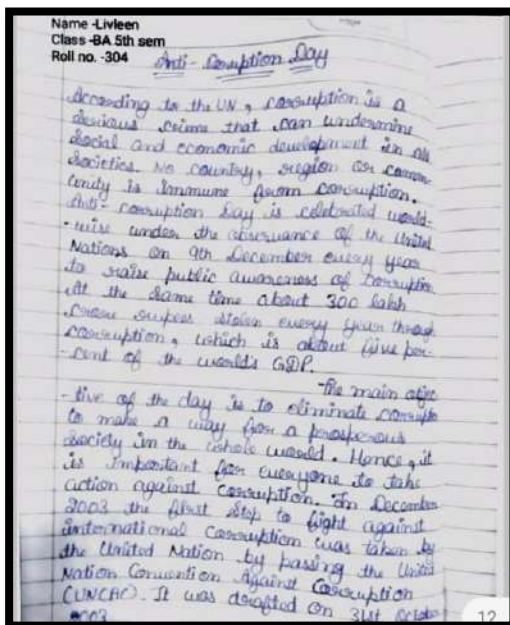 Name -Livleen
Class -BA 5th sem
Roll no. -304
Anti - Corruption Day
According to the UN, corruption is a
serious crime that can undermine
social and economic development in all
societies. No country, region or comm
unity is immune from corruption.
Anti- corruption Day is celebrated world-
-wise under the observance of the United
Nations on 9th December every year
to raise public awareness of corruption
At the same time about 300 lakh
crore rupees stolen every year through
corruption, which is about five per-
-cent of the world's GDP.
The main objec
-tive of the day is to eliminate corruption
to make a way for a prosperous
society in the whole world. Hence, it
is important for everyone to take
action against corruption. In December
2003 the first step to fight against
international corruption was taken by
the United Nation by passing the United
Nation Convention Against Corruption
(UNCAC). It was drafted on 31st October
2003
12